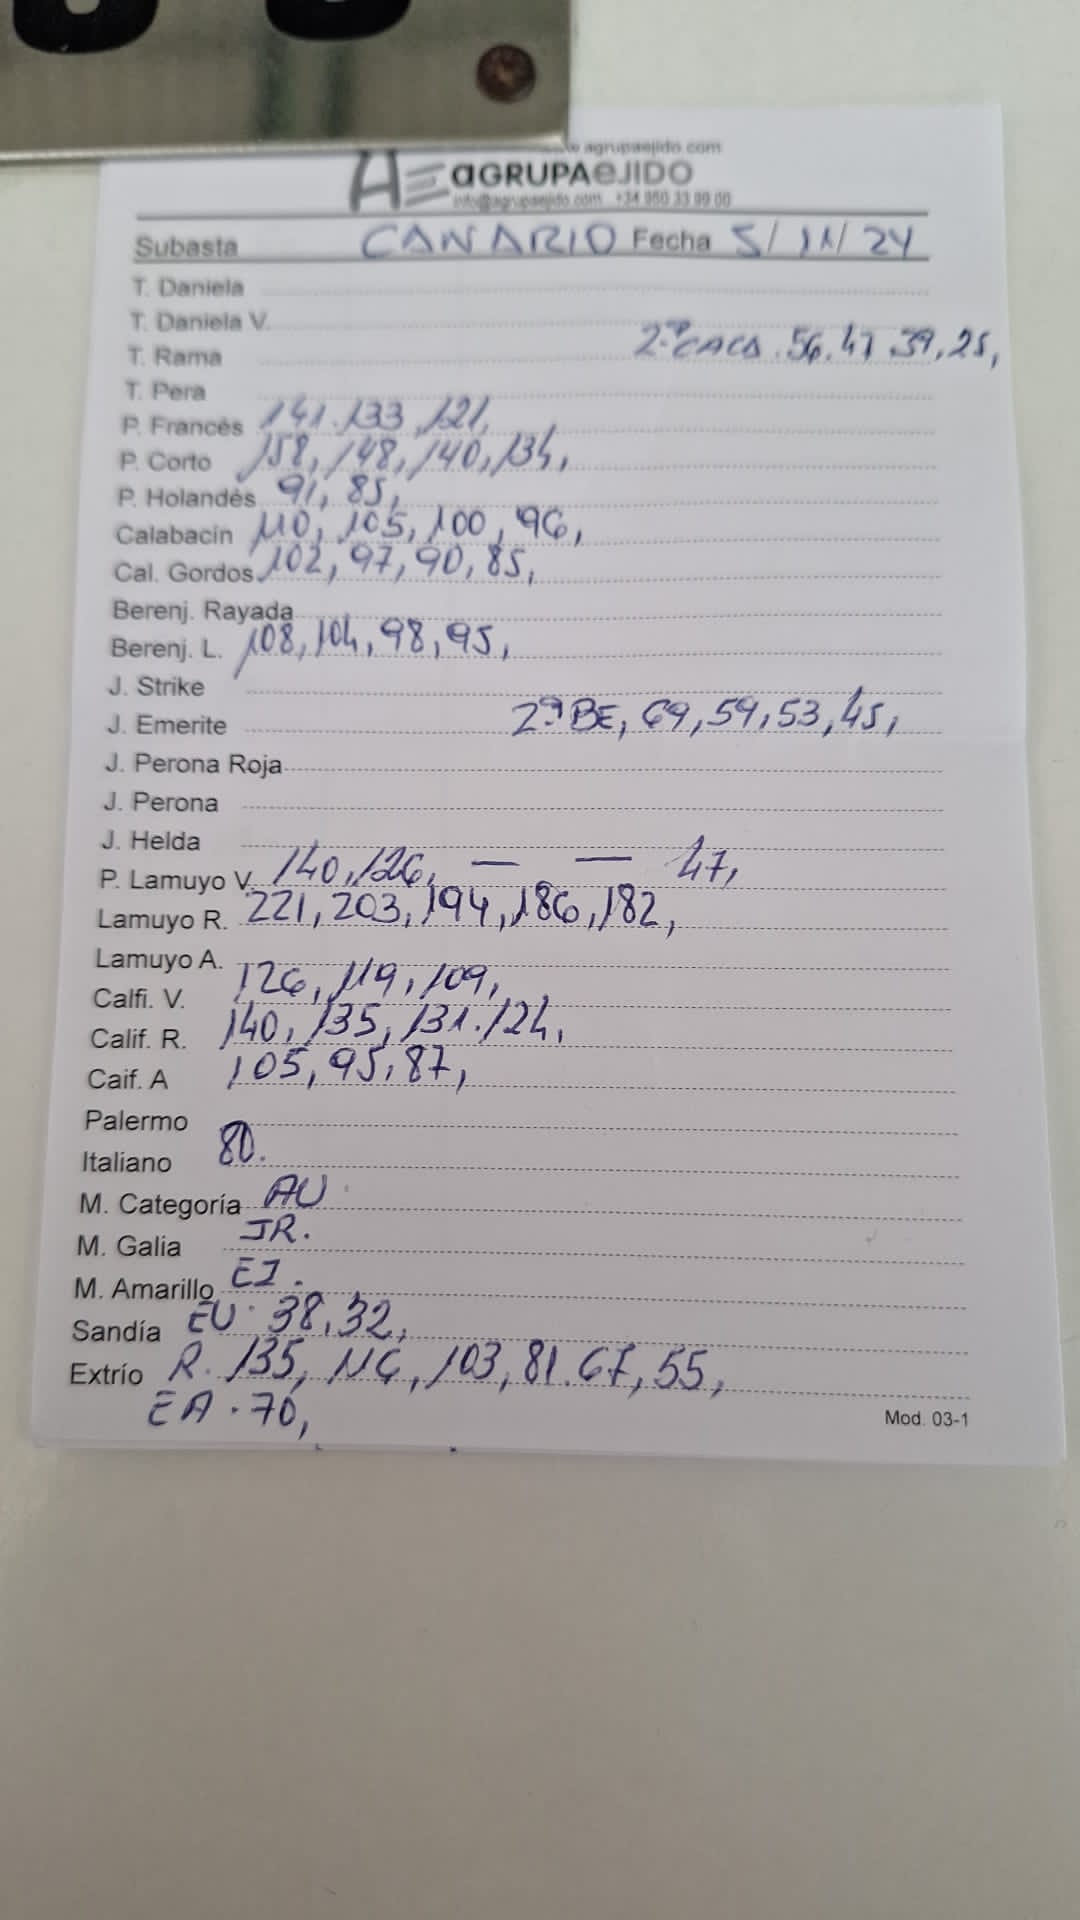 www.agrupaejido.com
AE aGRUPAeJIDO
info@agrupaejido.com +34 950 33 99 00
Subasta CANARIO Fecha 5/11/24
T. Daniela
T. Daniela V.
T. Rama 2ª CACA. 56, 47. 39, 25,
T. Pera
P. Francés 141. 133, 121,
P. Corto 158, 148, 140, 134,
P. Holandés 91, 85,
Calabacín 110, 105, 100, 96,
Cal. Gordos 102, 97, 90, 85,
Berenj. Rayada
Berenj. L. 108, 104, 98, 95,
J. Strike
J. Emerite 2ª BE, 69, 59, 53, 45,
J. Perona Roja
J. Perona
J. Helda
P. Lamuyo V. 140, 126, — — 47,
Lamuyo R. 221, 203, 194, 186, 182,
Lamuyo A.
Calfi. V. 126, 119, 109,
Calif. R. 140, 135, 131. 124,
Caif. A 105, 95, 87,
Palermo
Italiano 80.
M. Categoría AU
M. Galia JR.
M. Amarillo EJ.
Sandía EU. 38, 32,
Extrío R. 135, 116, 103, 81. 67, 55,
EA. 70,
Mod. 03-1